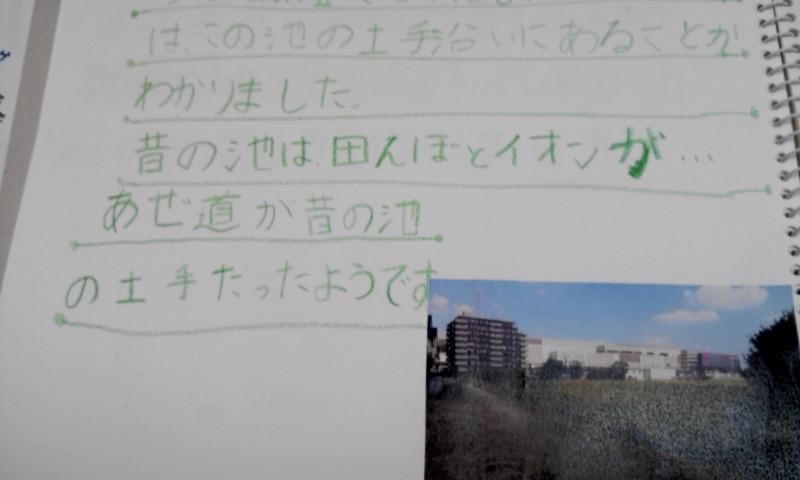 は、この池の土手沿いにあることが
わかりました。
昔の池は田んぼとイオンが…
あぜ道が昔の池
の土手だったようです